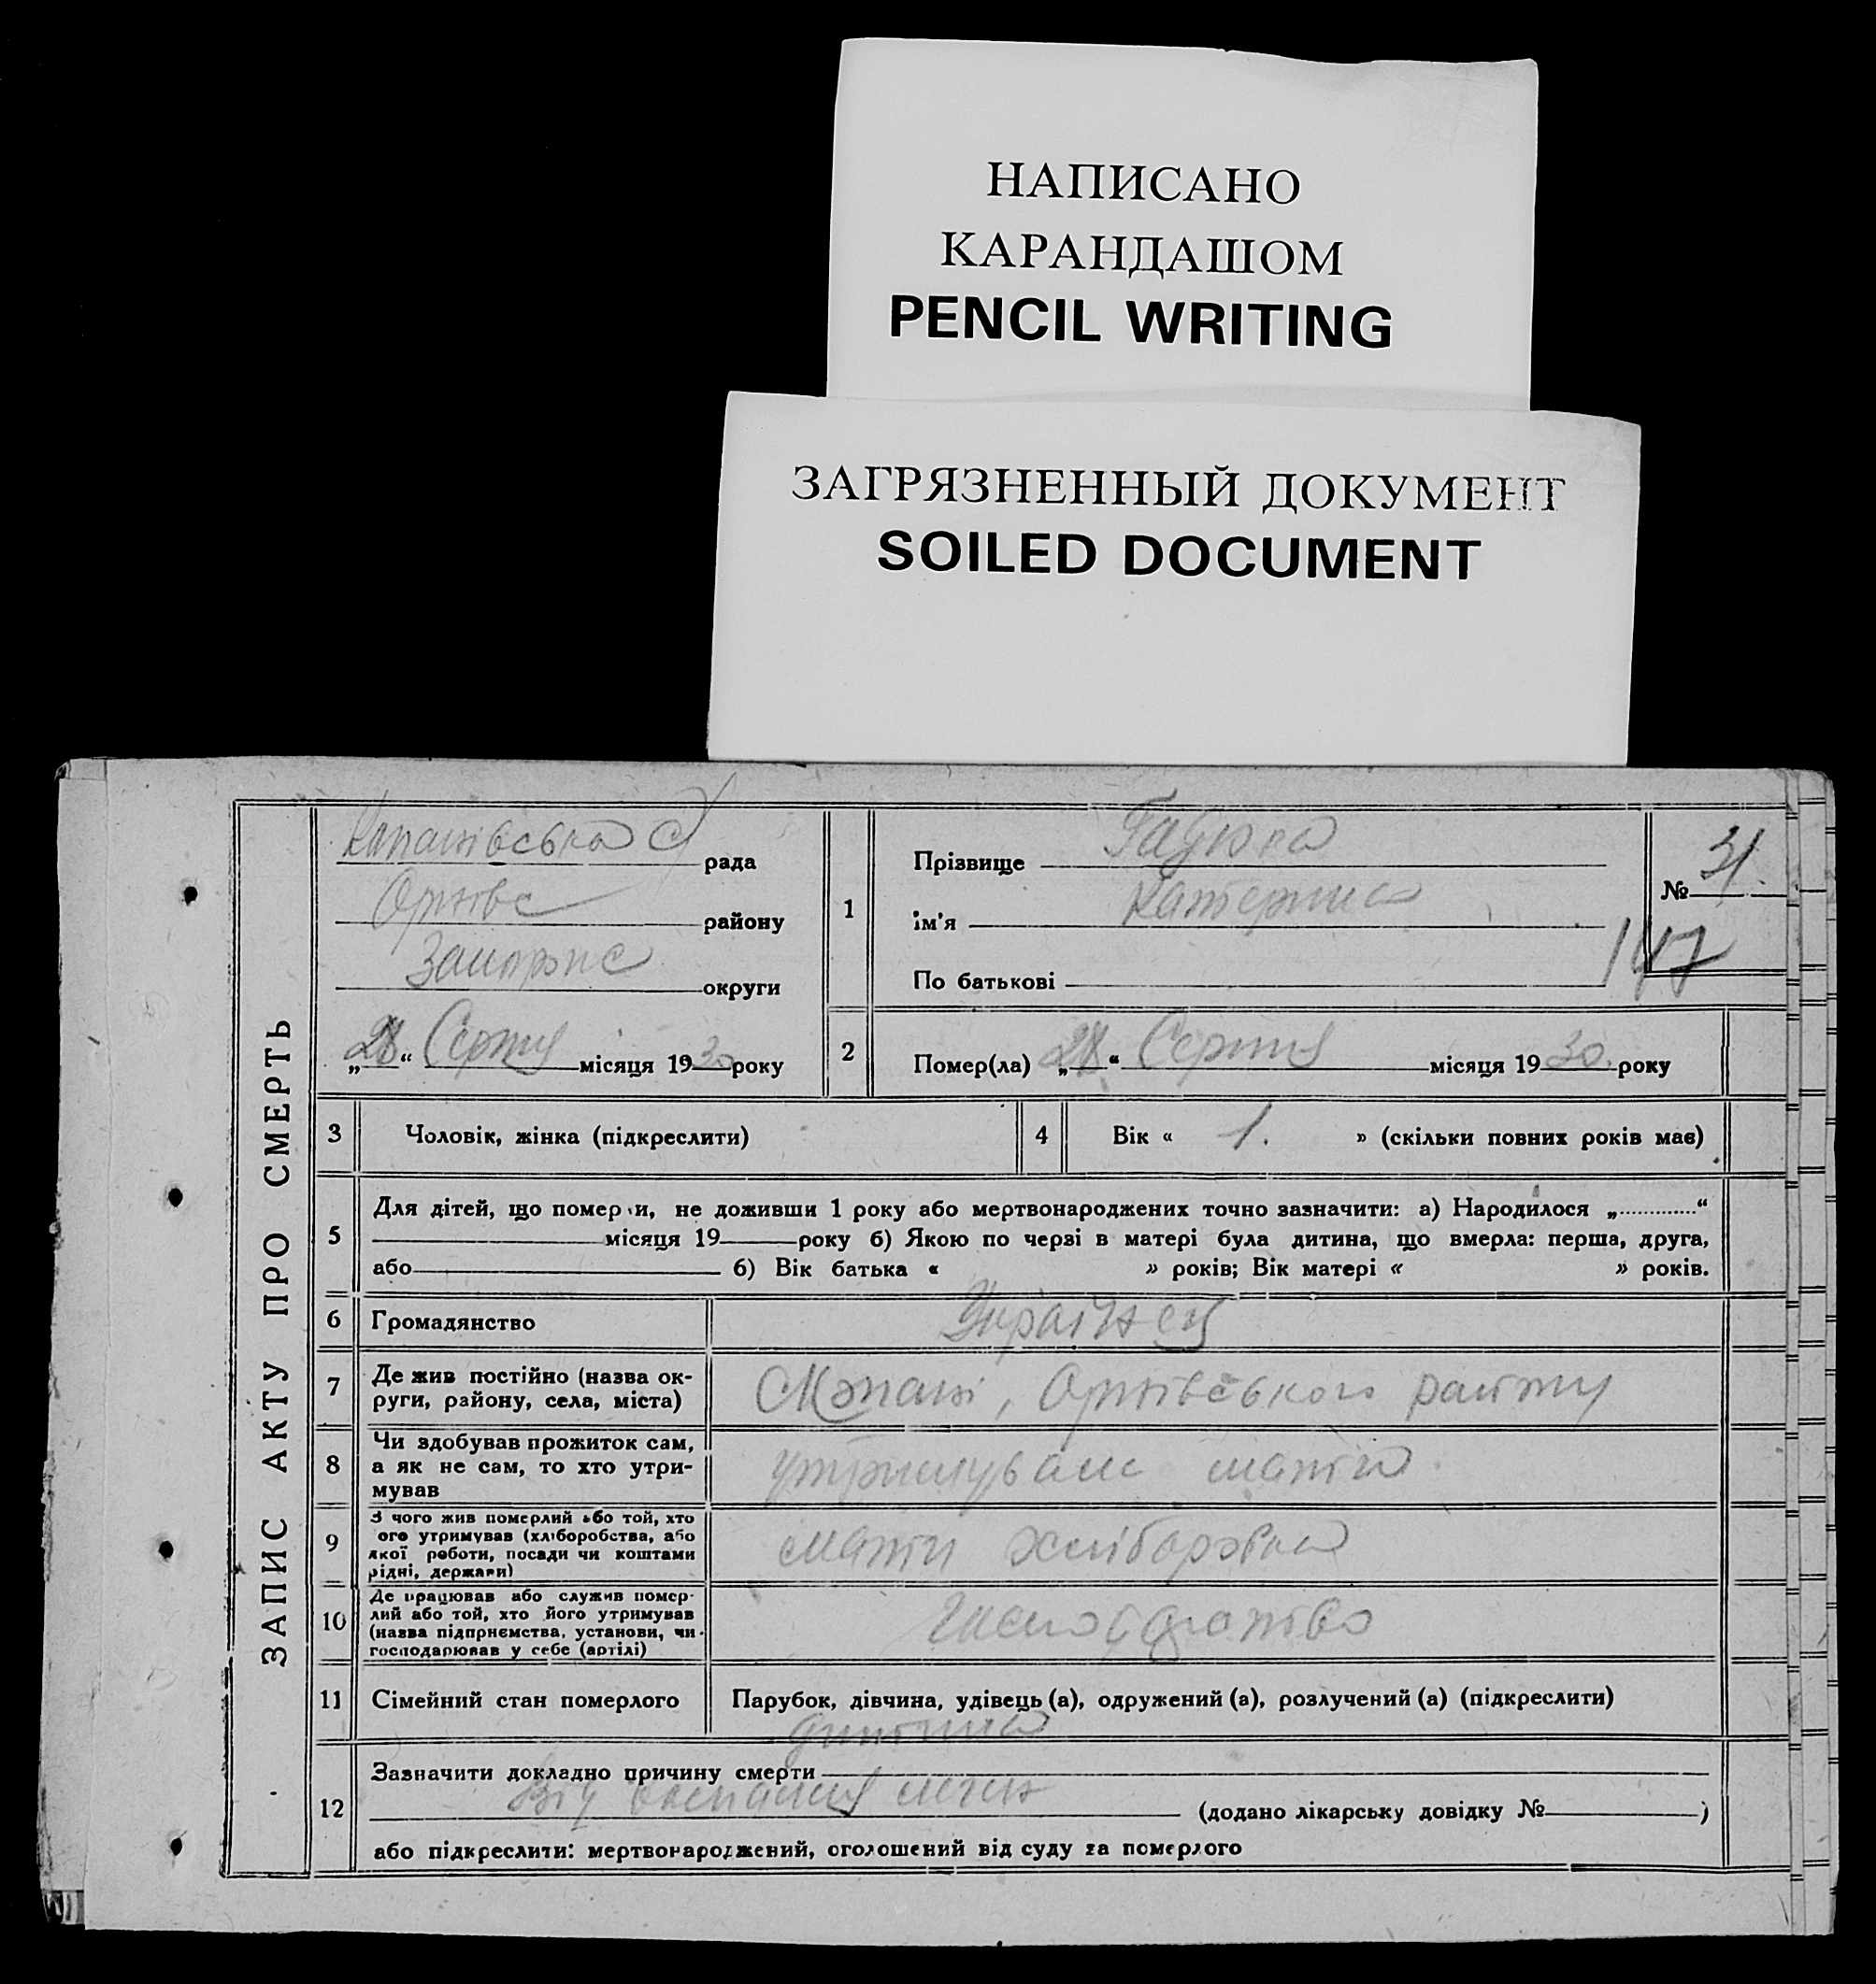 НАПИСАНО
КАРАНДАШОМ
PENCIL WRITING
ЗАГРЯЗНЕННЫЙ ДОКУМЕНТ
SOILED DOCUMENT
ЗАПИС АКТУ ПРО СМЕРТЬ
Копанівська с/ рада
Оріхівс району
Запоріжс округи
„28“ Серпня місяця 1930 року
1
Прізвище
ім'я Катерина
По батькові
№ 31.
147
2
Помер(ла) „28“ Серпня місяця 1930. року
3 Чоловік, жінка (підкреслити)
4 Вік « 1. » (скільки повних років має)
5
Для дітей, що померли, не доживши 1 року або мертвонароджених точно зазначити: а) Народилося „.............“
місяця 19 року б) Якою по черзі в матері була дитина, що вмерла: перша, друга,
або б) Вік батька « » років; Вік матері « » років.
6 Громадянство Українец
7 Де жив постійно (назва ок-
руги, району, села, міста)
Копані, Оріхівського району
8 Чи здобував прожиток сам,
а як не сам, то хто утри-
мував
утримувала мати
9 З чого жив померлий або той, хто
ого утримував (хліборобства, або
якої роботи, посади чи коштами
рідні, держави)
мати хліборобка
10 Де працював або служив помер-
лий або той, хто його утримував
(назва підприємства, установи, чи
господарював у себе (артілі)
11 Сімейний стан померлого Парубок, дівчина, удівець (а), одружений (а), розлучений (а) (підкреслити)
дитина
12
Зазначити докладно причину смерти
Від воспаления легк (додано лікарську довідку № )
або підкреслити: мертвонароджений, оголошений від суду за померлого